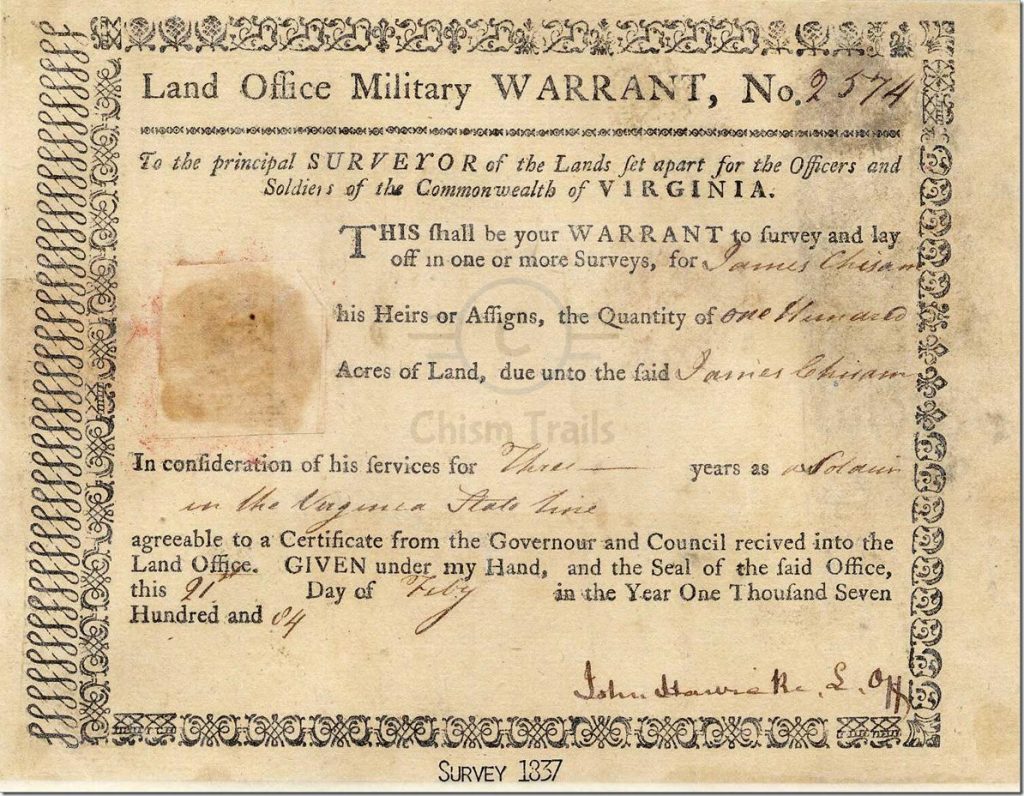 Land Office Military WARRANT, No. 2574
To the principal SURVEYOR of the Lands ſet apart for the Officers and
Soldiers of the Commonwealth of VIRGINIA.
THIS ſhall be your WARRANT to ſurvey and lay
off in one or more Surveys, for James Chisam
his Heirs or Aſſigns, the Quantity of one Hundred
C
Acres of Land, due unto the ſaid James Chisam
Chism Trails
In conſideration of his ſervices for Three years as a Soldier
in the Virginia State line
agreeable to a Certificate from the Governour and Council recived into the
Land Office. GIVEN under my Hand, and the Seal of the ſaid Office,
this 21st Day of Feby in the Year One Thouſand Seven
Hundred and 84
John Hawic L. Off
SURVEY 1837